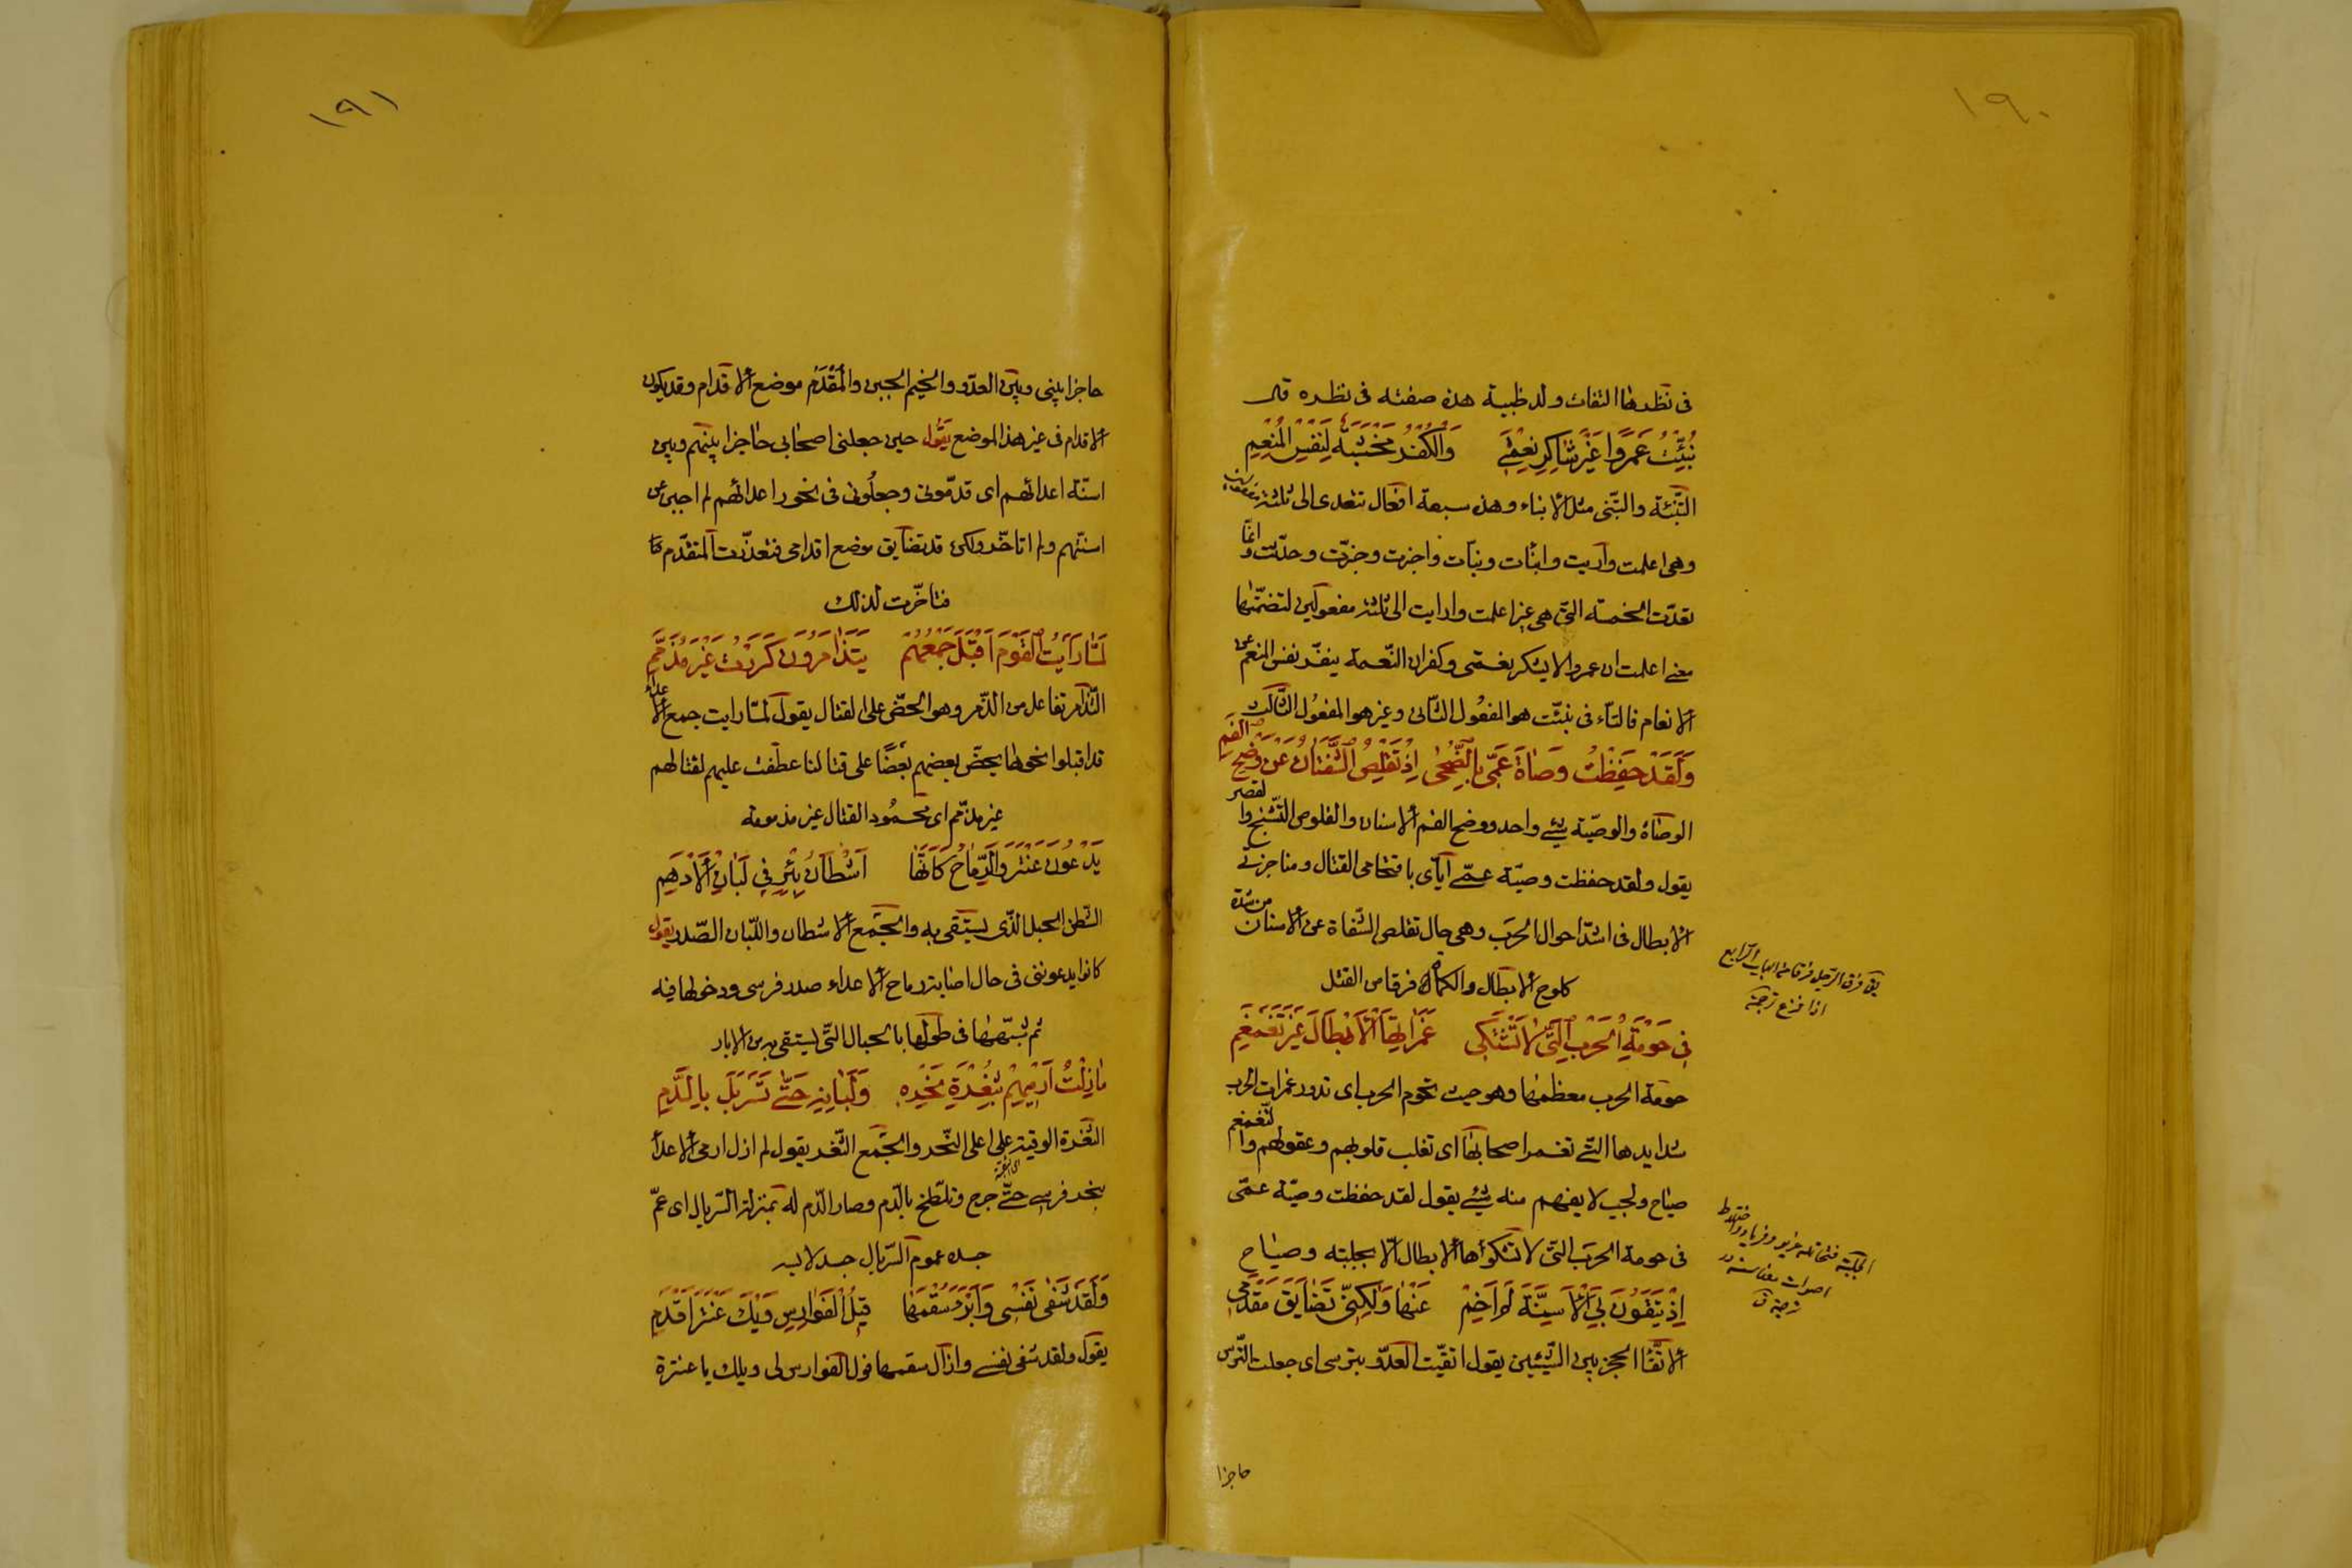 ١٩٠
فى نظرها التفات ولد ظبية هذه صفته فى نظره قال
نُبِّئْتُ عَمْرًوا غَيْرَ شَاكِرِ نِعْمَتِي وَالْكُفْرُ مَخْبَثَةٌ لِنَفْسِ الْمُنْعِمِ
التّنبئة والتّنبى مثل الانباء وهذه سبعة افعال تتعدى الى ثلثة مفعولين
وهى اعلمت واريت وانبأت ونبأت واخبرت وخبرّت وحدّثت وانما
تعدّت الخمسة التى هى غير اعلمت وارايت الى ثلثة مفعولين لتضمّنها
معنى اعلمت ان عمروا لا يشكر نعمتى وكفران النّعمة ينفّر نفس المنعم عن
الانعام فالتّاء فى نبئّت هو المفعُول الثّانى وغير هو المفعُول الثّالث
وَلَقَدْ حَفِظْتُ وَصَاةَ عَمِّى بِالضُّحٰى اِذْ تَقْلِصُ الشَّفَتَانُ عَنْ وَضَحِ الْفَمِ
الوصَاة والوصيّة شئ واحد ووضح الفم الاسنان والقلوص التّشنج والقصر
يقول ولقد حفظت وصيّة عمّى ايّاى باقتحامى القتال ومناجزتى
الابطال فى اشدّ احوال الحرب وهى حال تقلص الشّفاة عن الاسنان من شدة
كلوح الابطال والكماة فرقا من القتل
فِى حَوْمَةِ الْحَرْبِ الَّتِى لَا تَشْتَكِى غَمَرَاتِهَا الْاَبْطَالُ غَيْرَ تَغَمْغُمِ
حومة الحرب معظمها وهو حيث تحوم الحرب اى تدور غمرات الحرب
شدايدها التى تغمر اصحابها اى تغلب قلوبهم وعقولهم والتّغمغم
صياح ولجب لا يفهم منه شئ يقول لقد حفظت وصيّة عمّى
فى حومة الحرب التى لا تشكوها الابطال الّا بجلبة وصياح
اِذْ يَتَّقُونَ بِيَ الْاَسِنَّةَ لَمْ اَخِمْ عَنْهَا وَلٰكِنّى تَضَايَقَ مَقْدَمِى
الاتّقا الحجز بين الشّيئين يقول اتقيّت العدّو بترسى اى جعلت التّرس
يق فرق الرّجل فرقا من الباب الرّابع
اذا فزع ترجمة
واختلاط
اصوات
حاجزا
١٩١
حاجزا بينى وبين العدّو والخيم الجبن والمُقْدَم موضع الاقدام وقد يكون
الاقدام فى غير هذا الموضع يقول حين جعلنى اصحابى حاجزا بينهم وبين
اسنّة اعدائهم اى قدمّونى وجعلُونى فى نحور اعدائهم لم اجبن عن
اسنّتهم ولم اتاخّر ولكن قد تضايق موضع اقدامى فتعذّرت المتقدّم
فتاخّرت لذلك
لَمَّا رَاَيْتُ الْقَوْمَ اَقْبَلَ جَمْعُهُمْ يَتَذَامَرُونَ كَرَرْتُ غَيْرَ مُذَمَّمِ
التّذامر تفاعل من الذّمر وهو الحضّ على القتال يقول لمّا رايت جمع الاعداء
قد اقبلوا نحونا يحضّ بعضهم بعضًا على قتالنا عطفت عليهم لقتالهم
غير مذمّم اى محمُود القتال غير مذمومه
يَدْعُونَ عَنْتَرَ وَالرِّمَاحُ كَاَنَّهَا اَشْطَانُ بِئْرٍ فِى لَبَانِ الْاَدْهَمِ
الشّطن الحبل الذّى يستقى به والجمع الاشطان واللّبان الصّدر يقول
كانوا يدعوننى فى حال اصابة رماح الاعداء صدر فرسى ودخولها فيه
ثم شبّهها فى طولها بالحبال التّى يستقى بها من الابار
مَا زِلْتُ اَرْمِيهِمْ بِثُغْرَةِ نَحْرِهِ وَلَبَانِهِ حَتّٰى تَسَرْبَلَ بِالدَّمِ
الثّغرة الوقبة على اعلى النّحر والجمع الثّغر يقول لم ازل ارمى الاعدأ
بنحر فرسى حتّى جرح وتلطّخ بالدّم وصار الدّم له بمنزلة السّربال اى عمّ
جسده عموم السّربال جسد لابسه
وَلَقَدْ شَفٰى نَفْسِى وَاَبْرَءَ سُقْمَهَا قِيلُ الْفَوَارِسِ وَيْكَ عَنْتَرَ اَقْدِمِ
يقول ولقد شفى نفسى وازال سقمها قول الفوارس لى ويلك يا عنترة